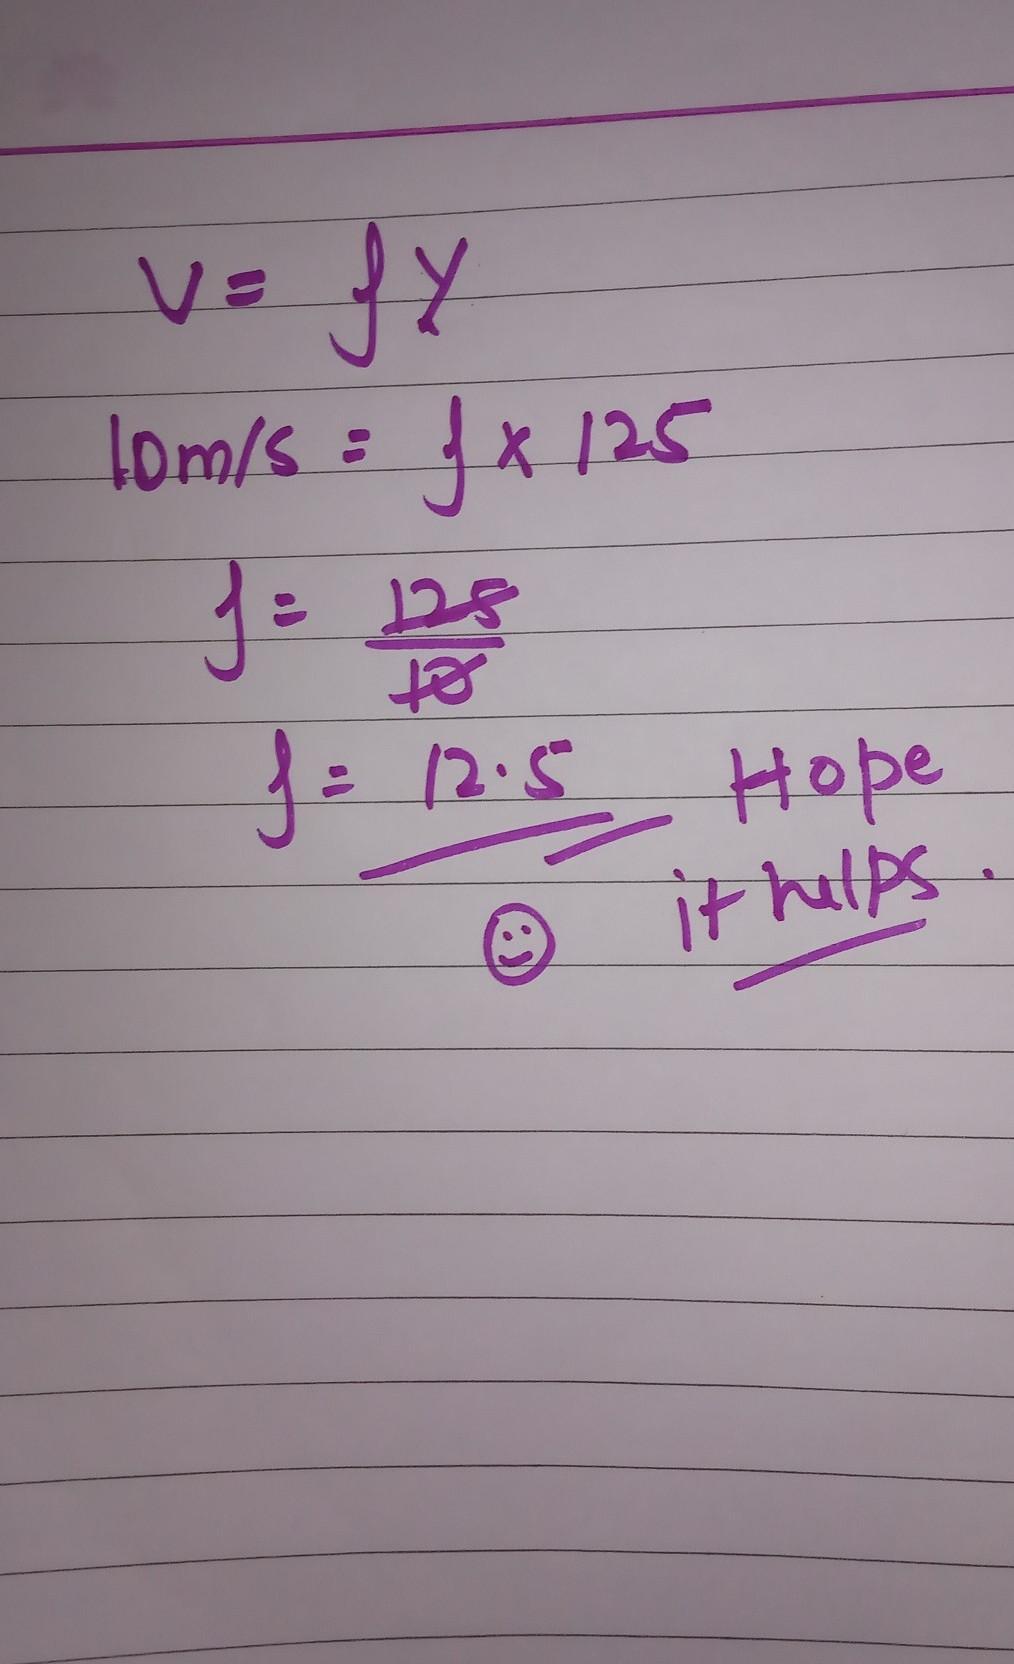 V = fY
10m/s = f x 125
f = 125
10
f = 12.5 Hope
it helps.